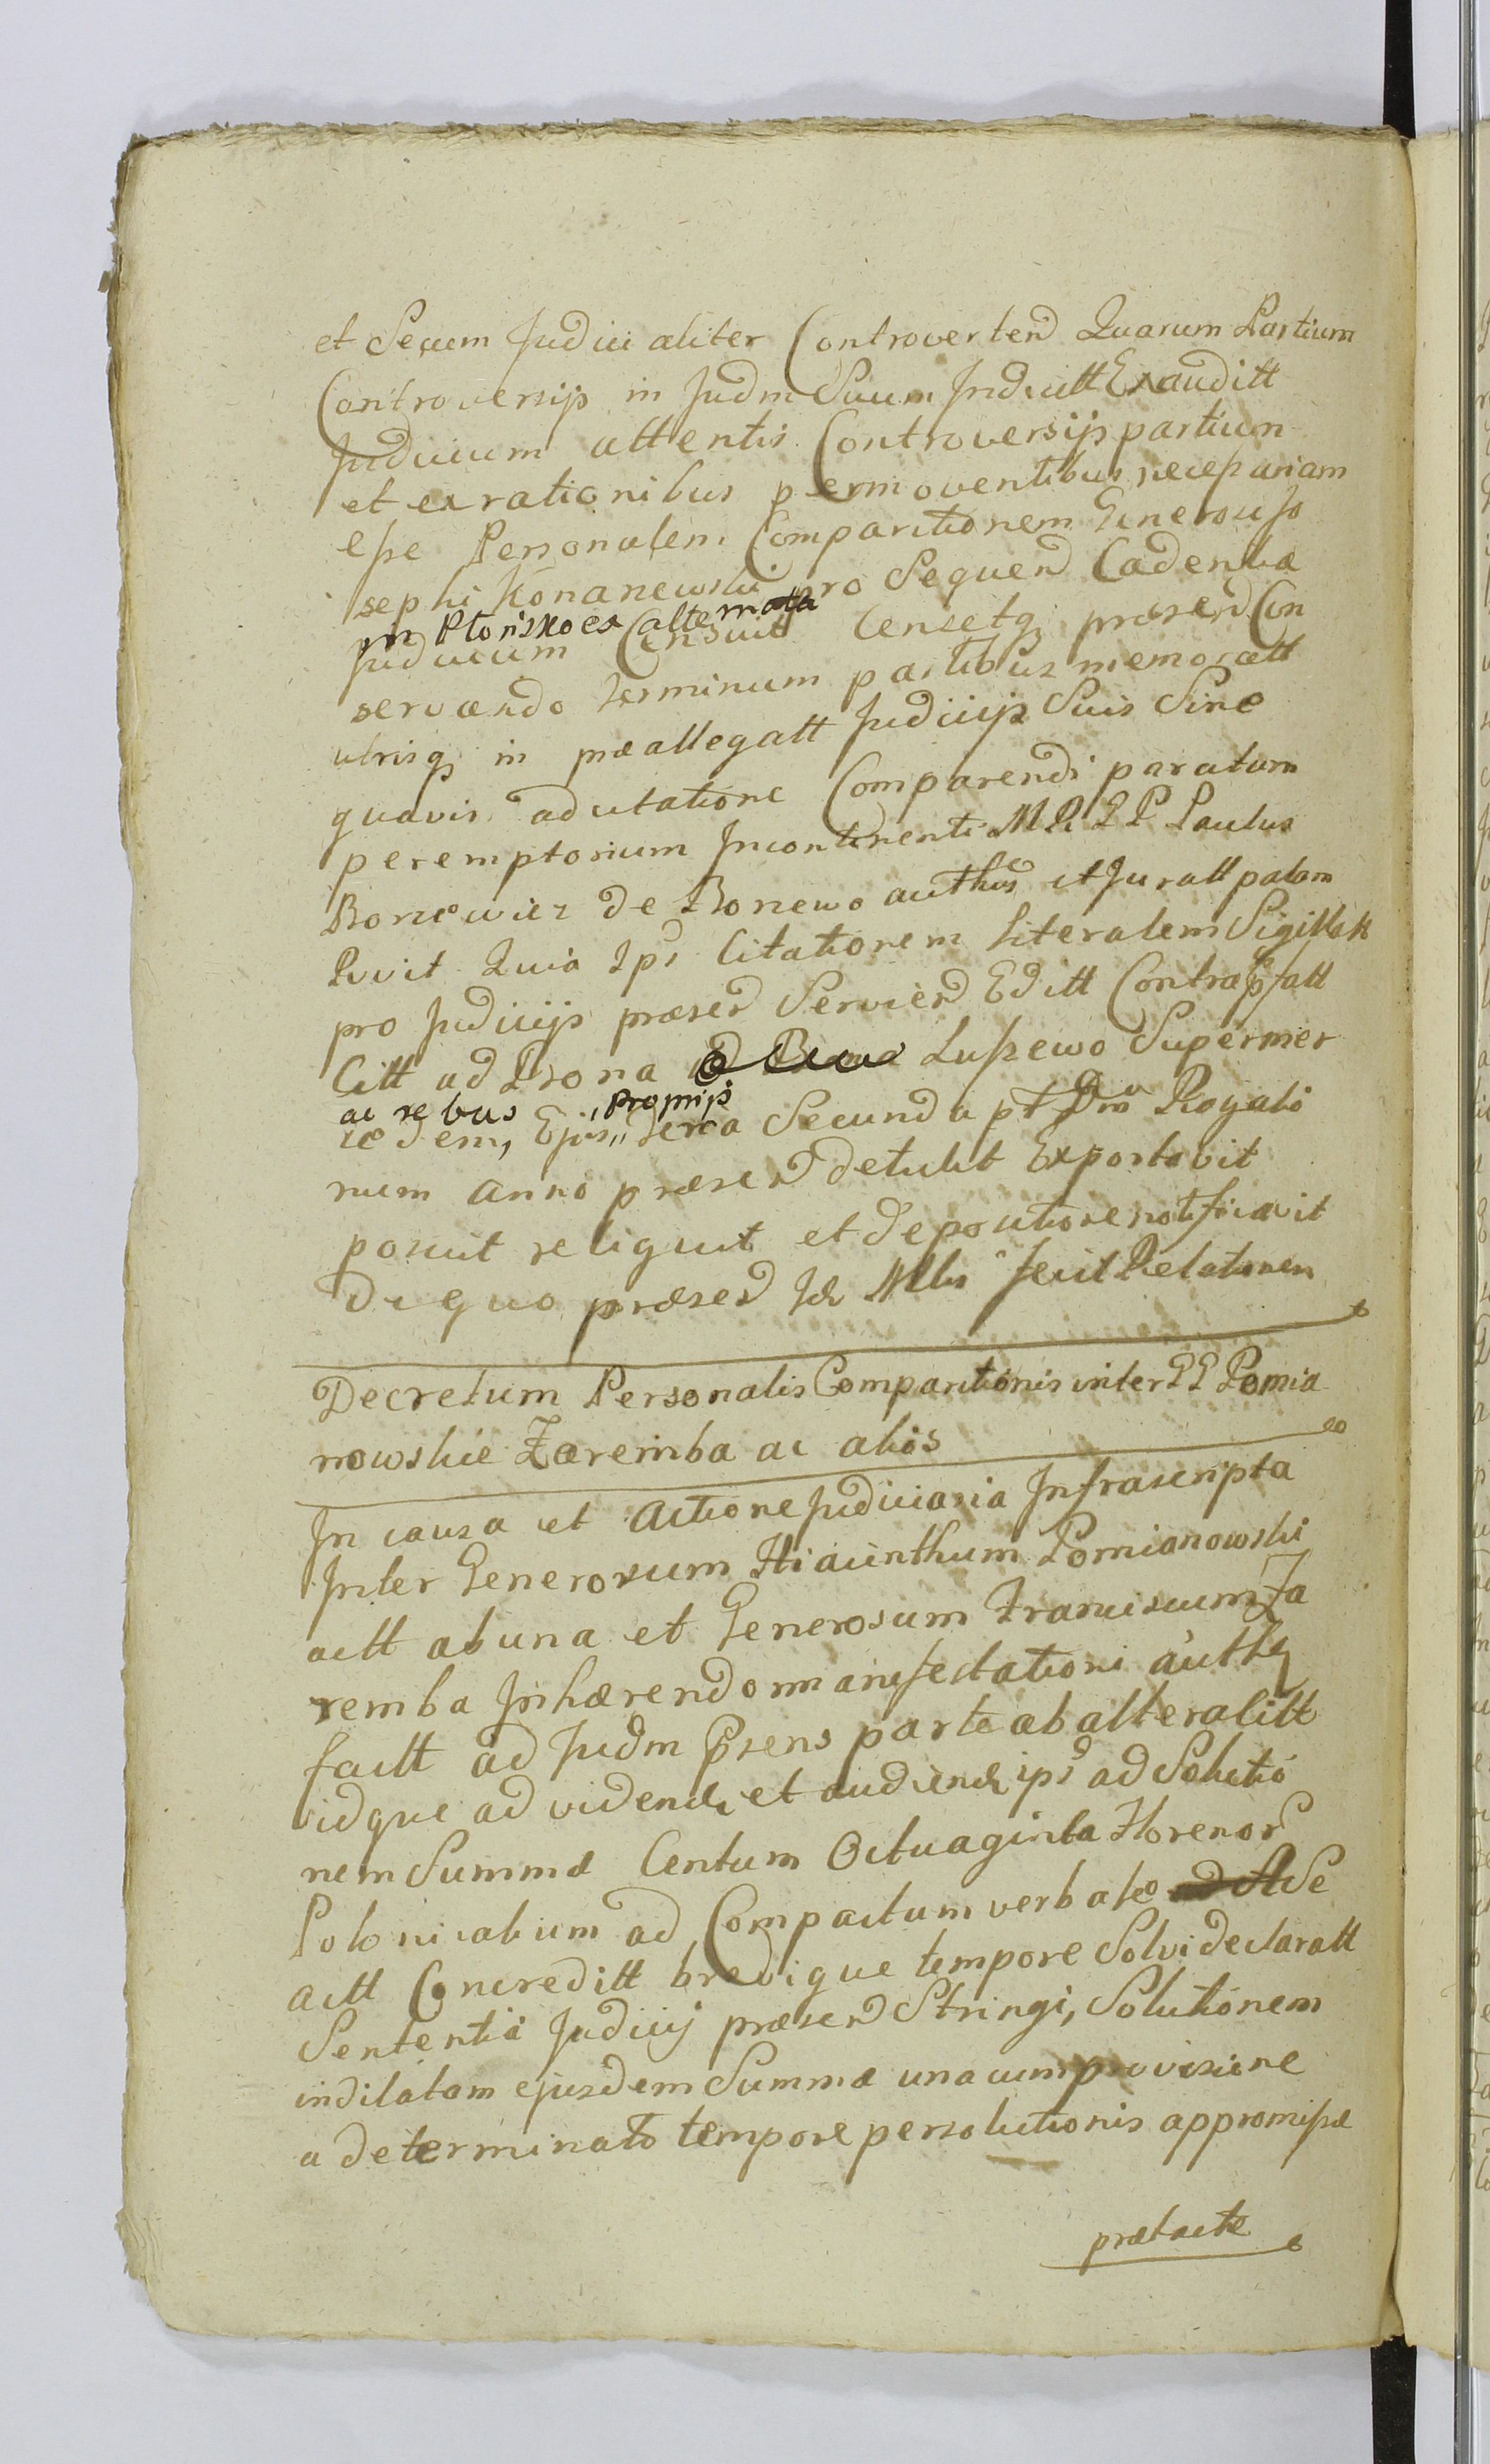 et Secum Judici aliter Controvertend Quarum Partium
Controversijs in Judm Suum Indictt Exauditt
Judicium attentis Controversijs partium
et ex rationibus permoventibus necessariam
esse Personalem Comparitionem Generosi Jo
sephi Konanewski pro Sequend Cadentia
in Płońsko ex alternata
Judicium Censuit Censetq præsen Con
servando terminum partibus memoratt
utrisq in præallegatt Judicijs Suis Sine
quavis adcitatione Comparendi paratum
peremptorium Incontinenti M R P P Paulus
de Bonewo auths et Juratt palam
Quia Ips Citationem literalem Sigillatt
pro Judicijs præsen Servien Editt Contra
Citt ad Bona Luszewo Supermer
ac rebus proprijs
Secunda Regalio
num anno præsen detulit Exportavit
posuit reliquit et depositione notificavit
De quo præsen fecit Relationem
Decretum Personalis Comparitionis inter PP Pomia
nowskie Zaremba ac alios
In causa et Actione Judiciaria Infrascripta
Inter Generosum Hiacinthum Pomianowski
actt ab una et Generosum Franciscum Za
remba Inhærendo manifestationi auth
factt ad Judm Psens parte ab altera Citt
idque ad vidend et audiend ips ad Solutio
nem Summæ Centum Octuaginta Florenor
Polonicalium ad Compactum verbale Se
actt Concreditt brevique tempore Solvi declaratt
Sententia Judicij præsen Stringi, Solutionem
indilatam ejusdem Summæ una cum provisione
a determinato tempore persolutionis appromissæ
prætacte